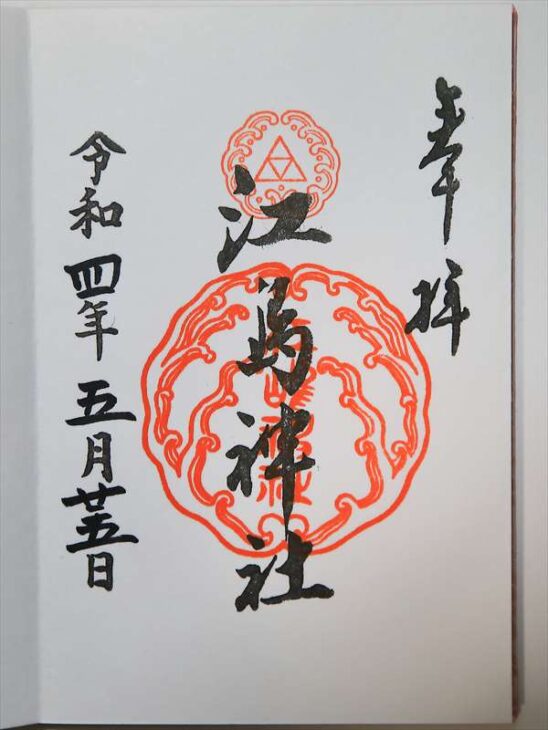 奉拝
江島神社
令和四年五月廿五日